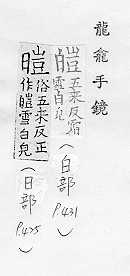 龍龕手鏡
皚五來反霜雪白皃（白部P.431）
暟俗五來反正作皚雪白皃（日部P.425）